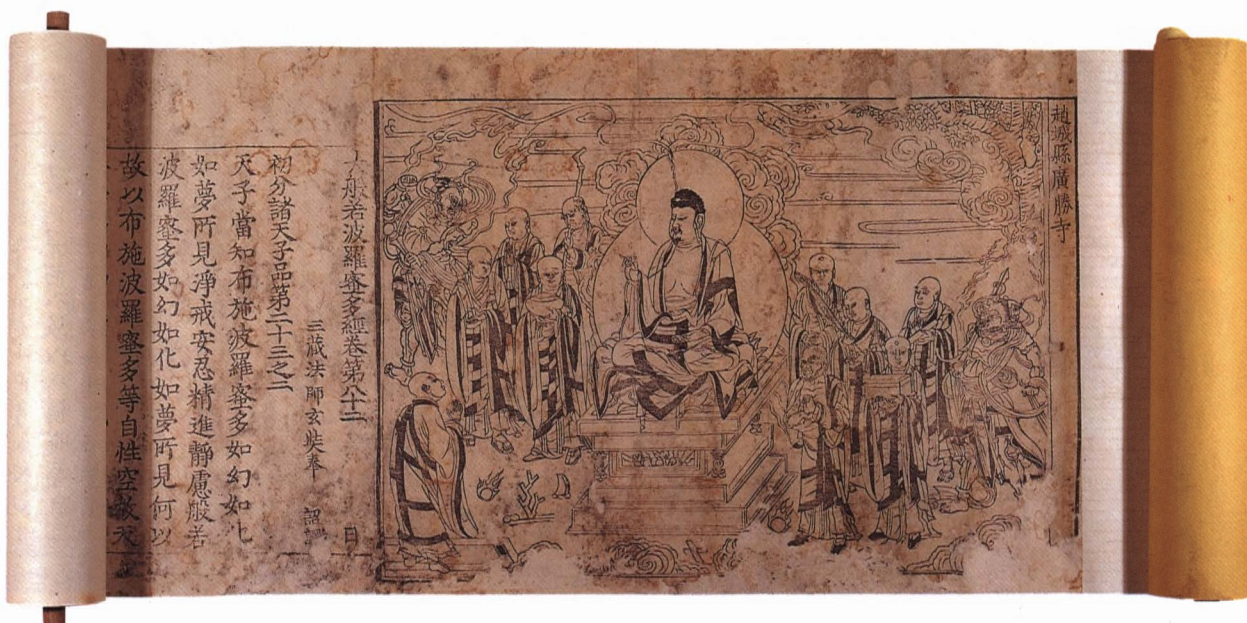 趙城縣廣勝寺
大般若波羅蜜多經卷第八十二
日
三藏法師玄奘奉 詔譯
初分諸天子品第二十三之二
天子當知布施波羅蜜多如幻如化
如夢所見淨戒安忍精進靜慮般若
波羅蜜多如幻如化如夢所見何以
故以布施波羅蜜多等自性空故天